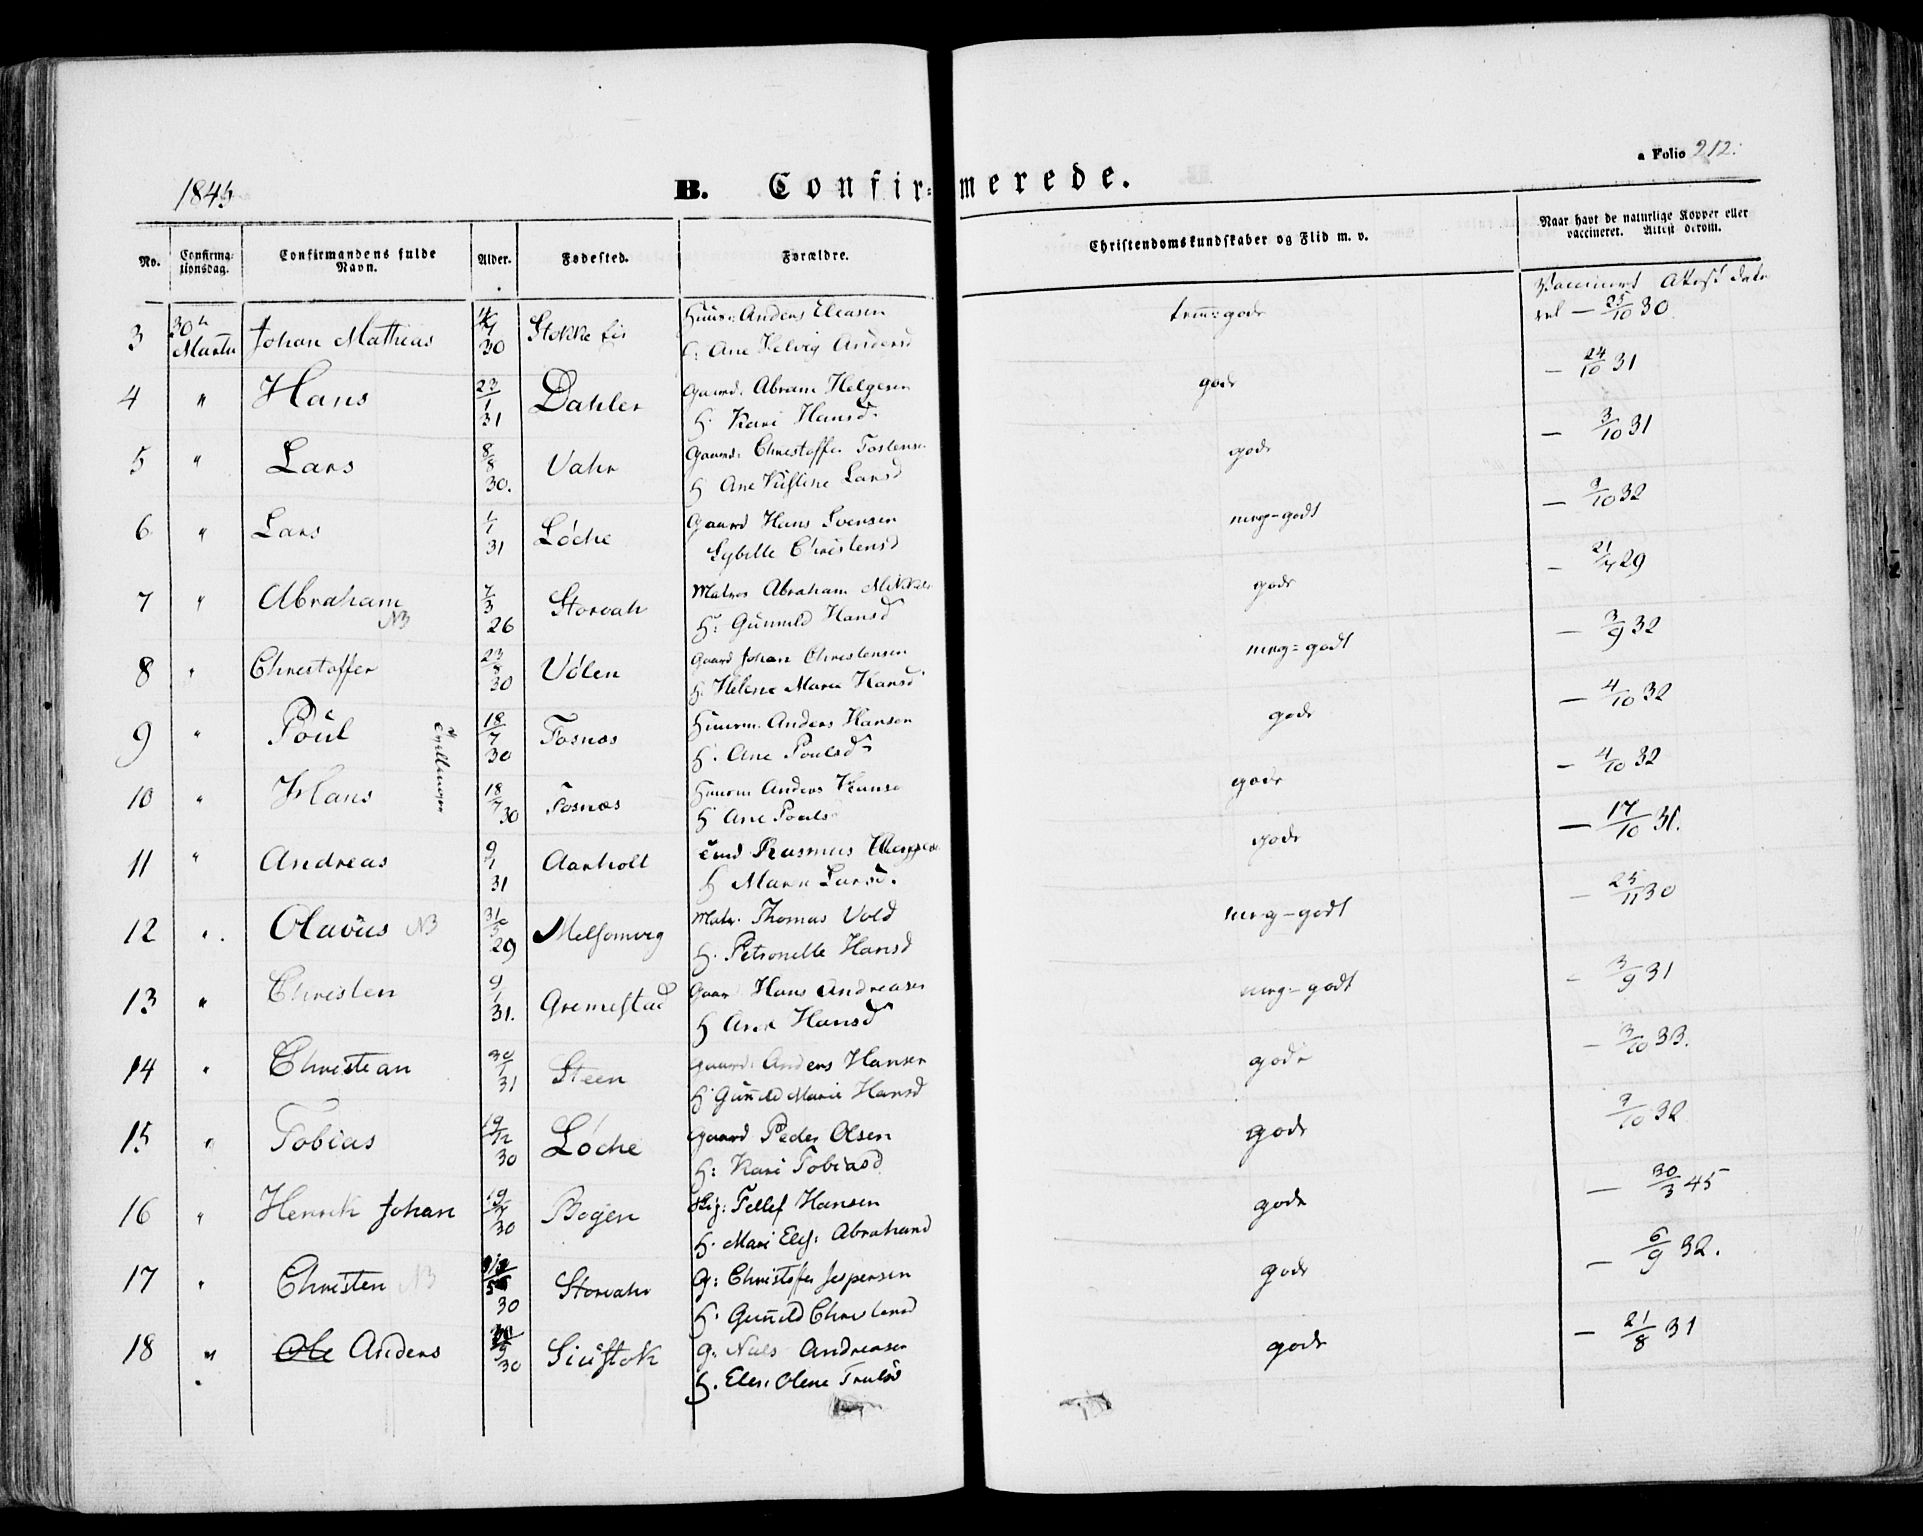 a Folio 212.
1845
B. Confir-merede.
No.
Confirma-
tionsdag.
Confirmandens fulde
Navn.
Alder.
Fødested.
Forældre.
Christendomskundskaber og Flid m. v.
Naar havt de naturlige Kopper eller
vaccineret. Attest derom.
3 30te Martii Johan Mathias 30 Stokke Huusm: Anders Eleasen
H: Ane Helvig Andersd
gode
Vaccineret Attest
25/10 30
4 " Hans 23/1 31 Dahler Gaard: Abram Helgesen
H. Kari Hansd
gode — 24/10 31
5 " Lars 8/8 30. Vahr Gaard: Chrestoffer Tostens
H Ane Larsd
gode — 3/10 31
6 " Lars 1/1 31 Løche Gaard Hans Svensen
Sybille Christensd
meg-godt — 3/10 32
7 " Abraham NB 7/3 26 Storvahr Matros Abraham Mikkels
H: Gunnild Hansd
gode — 21/7 29
8 " Chrestoffer 30 Vølen Gaard Johan Chrestensen
H. Helene Maria Hansd
meg=godt — 3/9 32
9 " Poul Tvillinger 18/7 30 Fosnæs Huusm. Anders Hansen
H. Ane Poulsd
gode — 4/10 32
10 " Hans 18/7 30 Fosnæs Huusm Anders Hanse
H Ane Pouls
gode — 4/10 32
11 " Andreas 9/1 31 Aarholt Rasmus
H Maria Larsd.
gode — 17/10 31.
12 " Olavus NB 31/5 29 Melsomvig Matr. Thomas Vold
H. Petronelle Hansd
meg-godt — 25/11 30
13 " Christen 9/1 31. Gremestad Gaar Hans Andreasen
H Ane Hansd
meg-godt — 3/9 31
14 " Christian 30/1 31 Steen Gaard: Anders Hansen
H Gunild Marie Hansd
gode — 3/10 33.
15 " Tobias 19/12 30 Løche Gaard Peder Olsen
H: Kari Tobiasd
gode 3/10 32
16 " Henrik Johan 30 Bogen Tellef Hansen
H. Mari Els: Abrahamd
gode — 30/3 45
17 " Christen NB 30 Storvahr G: Christoffer Jespersen
H. Gunild
gode — 6/9 32.
18 " Ole Anders 30 G: Niels Andreasen
H. Elen Olene Trulsd
gode — 21/8 31